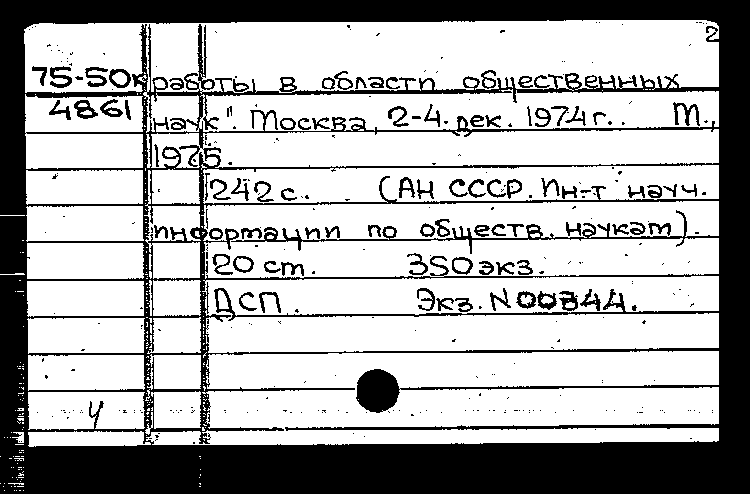 2
75-50к работы в области общественных
4861 наук". Москва, 2-4 дек. 1974 г.. М.,
1975.
242 с. (АН СССР. Ин-т науч.
информации по обществ. наукам).
20 ст. 350 экз.
ДСП. Экз. N 00344.